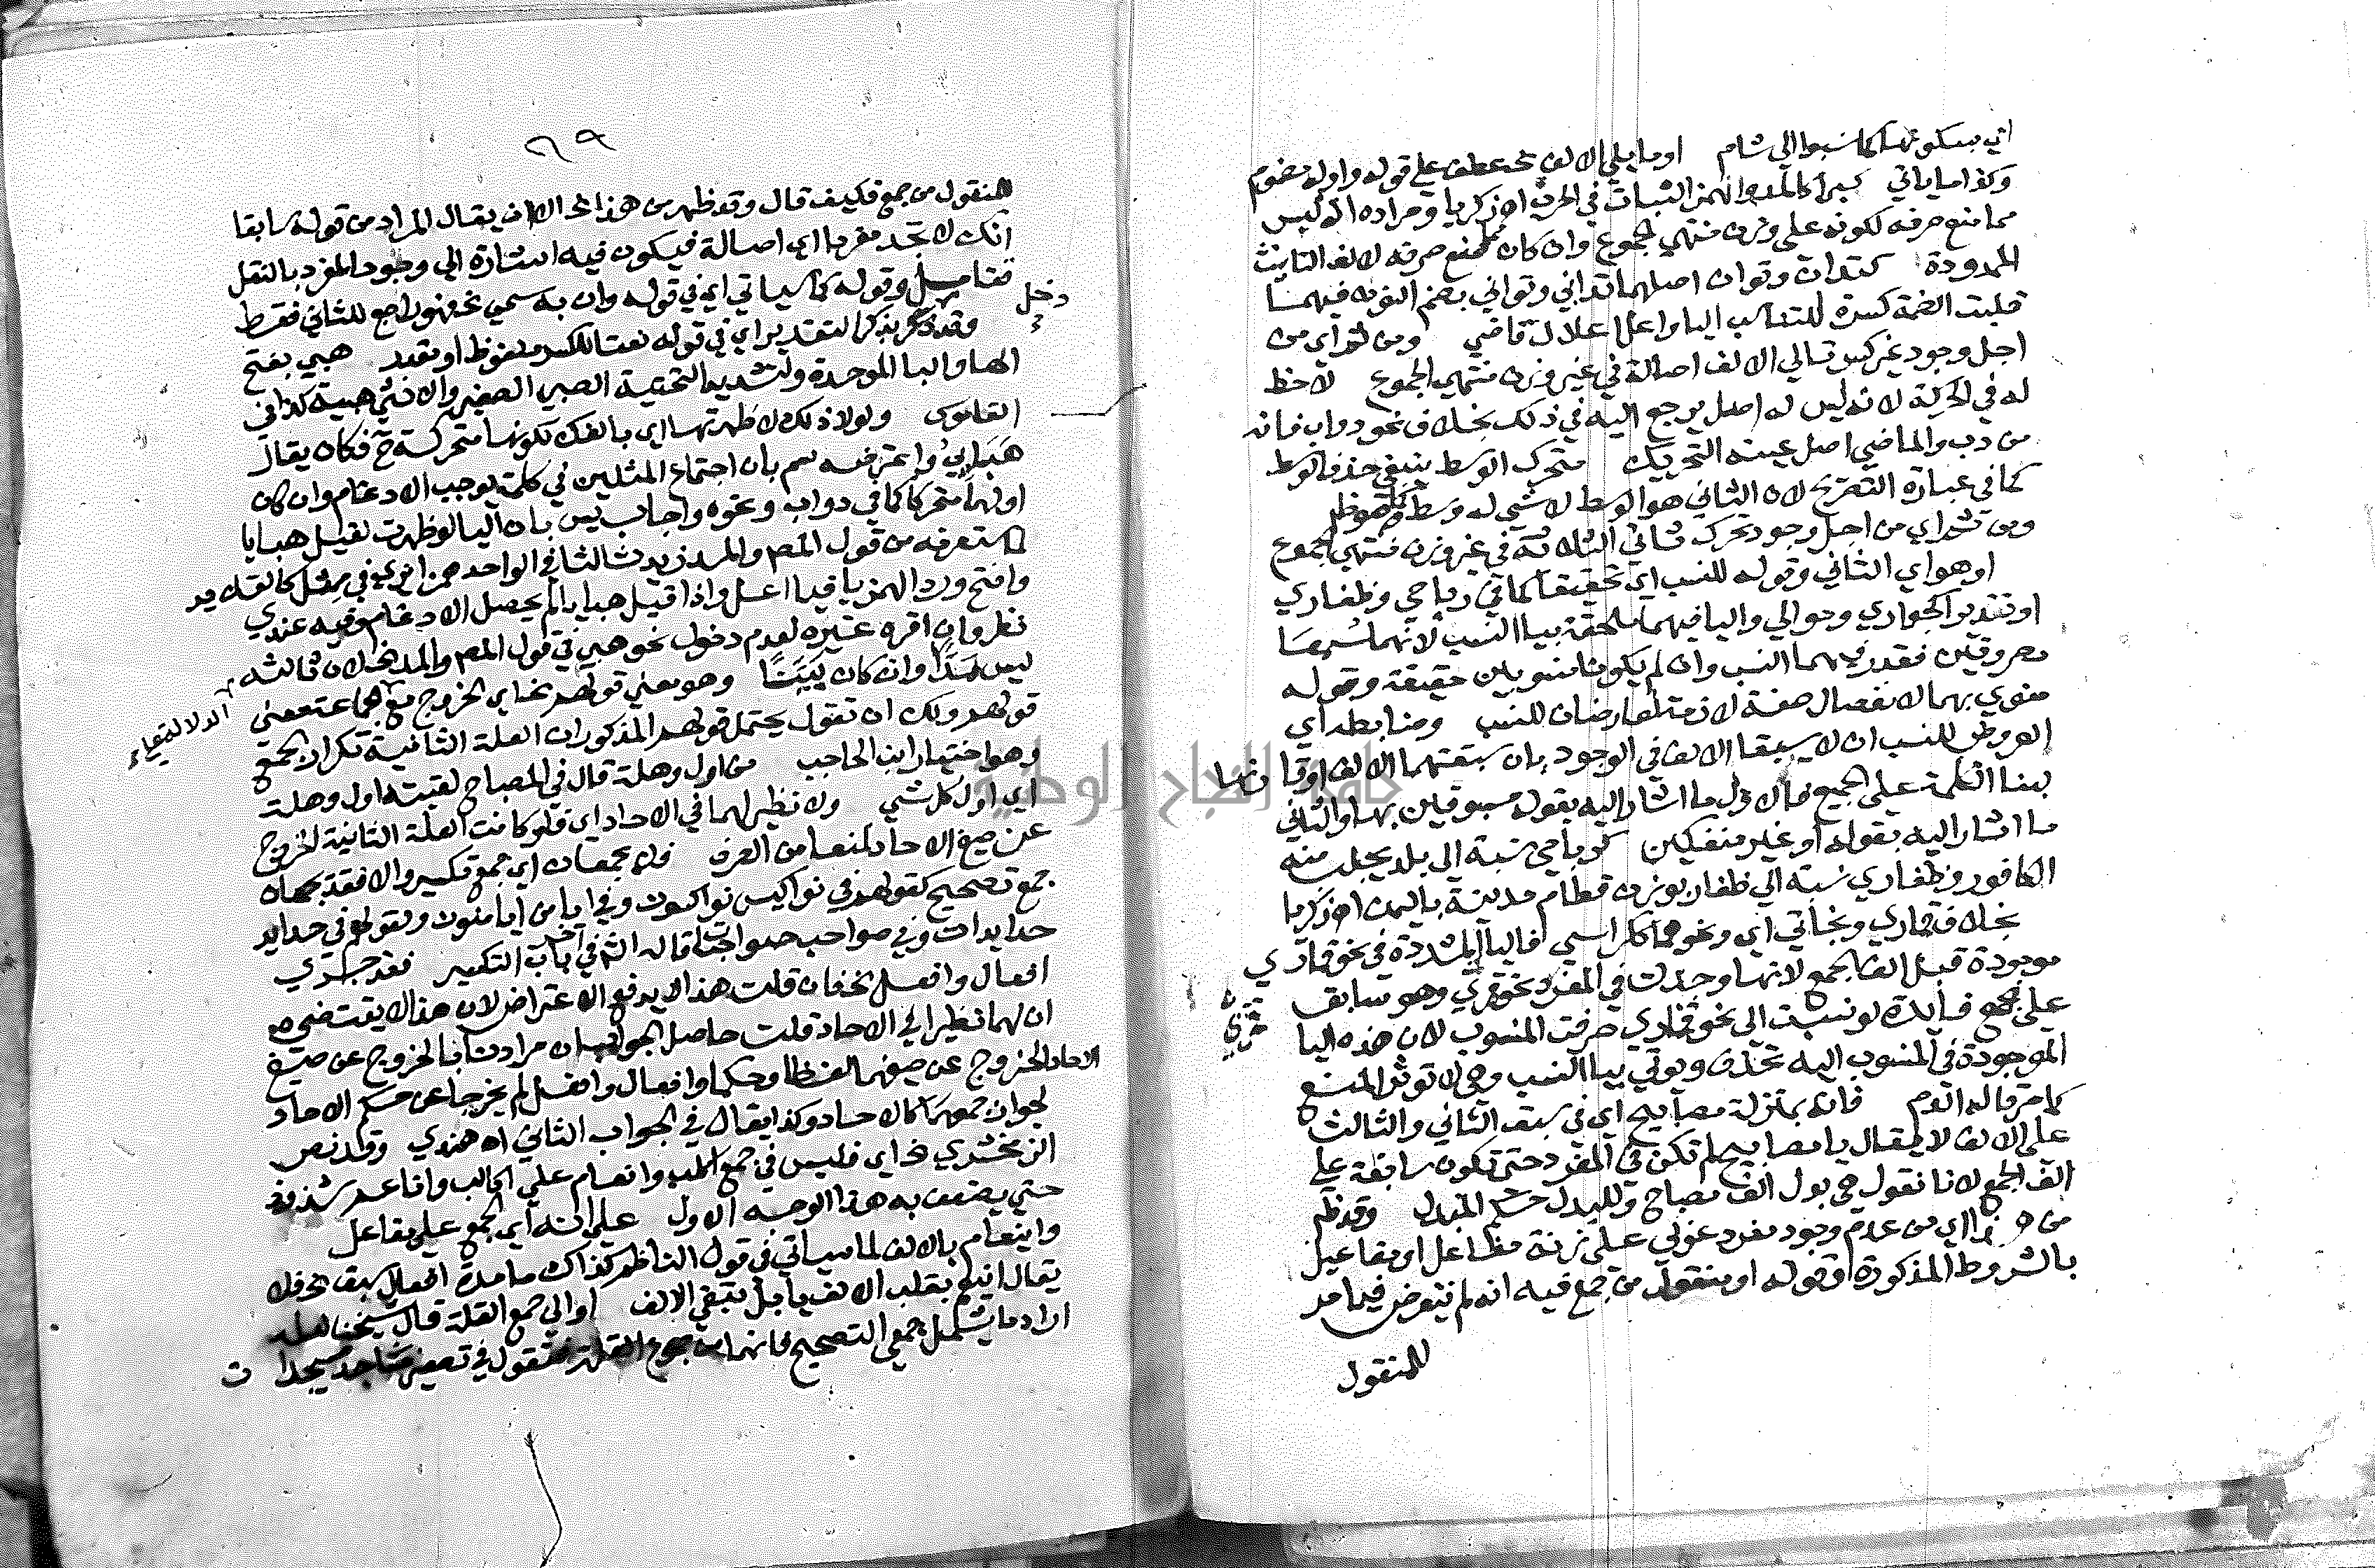 اتي بسكونها كما نسبوا الي شام او ما يلي الالف الخ عطف علي قوله واوله مضموم
وكذا ما ياتي كسراً كالمد والهمز الثبات في الحرف اه زكريا ومراده انه ليس
مما منع صرفه لكونه على وزن منتهي الجموع وان كان مما منع صرفه لالف التانيث
الممدودة كتدان وتوان اصلهما تداني وتواني بضم النون فيهما
قلبت الضمة كسرة لتناسب اليا واعلا اعلال قاضي ومن ثم اي من
اجل وجود غير كسر تالي الالف اصالة في غير وزن منتهي الجموع لاحظ
له في الحركة لانه ليس له اصل يرجع اليه في ذلك بخلاف نحو دواب فانه
من دب والماضي اصل عينه التحريك متحرك الوسط ينبغي حذف الوسط
كما في عبارة التصريح لان الثاني هو الوسط لا شي له وسط
ومن ثم اي من اجل وجود تحرك ثاني الثلاثة في غير وزن منتهي الجموع
او هو اي الثاني وقوله للنسب اي تحقيقا كما في رباحي وظفاري
او تقديرا كجواري وحوالي واليا فيهما ملحقة بيا النسب لانهما سمعا
مصروفين فقدر فيهما النسب وان لم يكونا منسوبين حقيقة وقوله
منوي بهما الانفصال صفة لازمة لعارضان للنسب وضابطه اي
العروض للنسب ان لا يسبقا الالف في الوجود بان سبقتهما الالف او قارنها
لبنا الكلمة على الجميع فالاول ما اشار اليه بقوله مسبوقين بها والثاني
ما اشار اليه بقوله او غير منفكين كرباحي نسبة الي بلد يجلب منه
الكافور وظفاري نسبة الي ظفار بوزن قطام مدينة باليمن اه زكريا
بخلاف قماري وبخاتي اي ونحوهما ككراسي فاليا المشددة في نحو قماري
موجودة قبل الف الجمع لانها وجدت في المفرد نحو قمري وهو سابق
على الجمع فايدة لو نسبت الي نحو قماري صرفت المنسوب لان هذه اليا
الموجودة في المنسوب اليه تحذف ويوتي بيا النسب وهي لا توثر المنع
كما مر قاله الدم فانه بمنزلة مصابيح اي في سبق الثاني والثالث
على الالف لا يقال يا مصابيح لم تكن في المفرد حتى تكون سابقة علي
الف الجمع لانا نقول هي بدل الف مصباح وللبدل حكم المبدل وقد ظهر
من هذا اي من عدم وجود مفرد عربي على زنة مفاعل او مفاعيل
بالشروط المذكورة وقوله او منقول من جمع فيه انه لم يتعرض فيما مر
للمنقول
٦٩
للمنقول من جمع فكيف قال وقد ظهر من هذا الخ الا ان يقال المراد من قوله سابقا
انك لا تجد مفردا اي اصالة فيكون فيه اشارة الي وجود المفرد بالنقل
فتامل وقوله كما سياتي اي في قوله وان به سمي الخ فهو راجع للثاني فقط
وقد ذكر بذكر التقدير اي في قوله نعتا لكسر ملفوظ او مقدر هبي بفتح
الها والبا الموحدة وتشديد التحتية الصبي الصغير والانثى هبية كذا في
القاموس ولولا ذلك لاظهرتها اي بالفك لكونها متحركة ح فكان يقال
هَبَايِيُ واعترضه سم بان اجتماع المثلين في كلمة يوجب الادغام وان كان
اولهما متحركا كما في دواب ونحوه واجاب يس بان اليا لو ظهرت لقيل هبايا
لما ستعرفه من قول المص والمد زيد ثالثا في الواحد همزا يري في مثل كالقلايد
وافتح ورد الهمز يا فيما اعل واذا قيل هبايا لم يحصل الادغام وفيه عندي
نظر وان اقره غيره لعدم دخول نحو هبي في قول المص والمد الخ لان ثالثه
ليس مدًّا وان كان لِينًا وهو معني قولهم نحا اي الخروج
قولهم ولك ان تقول يحتمل قولهم المذكور ان العلة الثانية تكرار الجمع
وهو اختيار ابن الحاجب من اول وهلة قال في المصباح لقيته اول وهلة
اي اول كل شي ولا نظير لهما في الاحاد اي فلو كانت العلة الثانية الخروج
عن صيغ الاحاد لمنعا من الصرف فلا يجمعان اي جمع تكسير والا فقد يجمعان
جمع تصحيح كقولهم في نواكس نواكسون وفي ايامن ايامنون وكقولهم في حدايد
حدايدات وفي صواحب صواحبات قاله الشم في باب التكسير فقد جري
افعال وافعل الخ فان قلت هذا لا يدفع الاعتراض لان هذا لا يقتضي
ان لهما نظيرا في الاحاد قلت حاصل الجواب ان مرادنا بالخروج عن صيغ
الاحاد الخروج عن صيغها لفظا وحكما وافعال وافعل لم يخرجا عن حكم الاحاد
لجواز جمعهما كالاحاد وكذا يقال في الجواب الثاني اه هندي وقد نص
الزمخشري الخ اي فليس في جمع
حتي يضعف به هذا الوجه الاول علي انه اي الجمع علي مفاعل
وايضا بالالف لما سياتي في قول الناظم كذاك ما مدة افعال سبق الخ فلا
يقال انيع بقلب الالف يا بل تبقي الالف او الي جمع القلة قال شيخنا لعله
اراد ما يشمل جمعي التصحيح فانهما من جموع القلة فتقول في تصغير مساجد مسيجدات
دخل